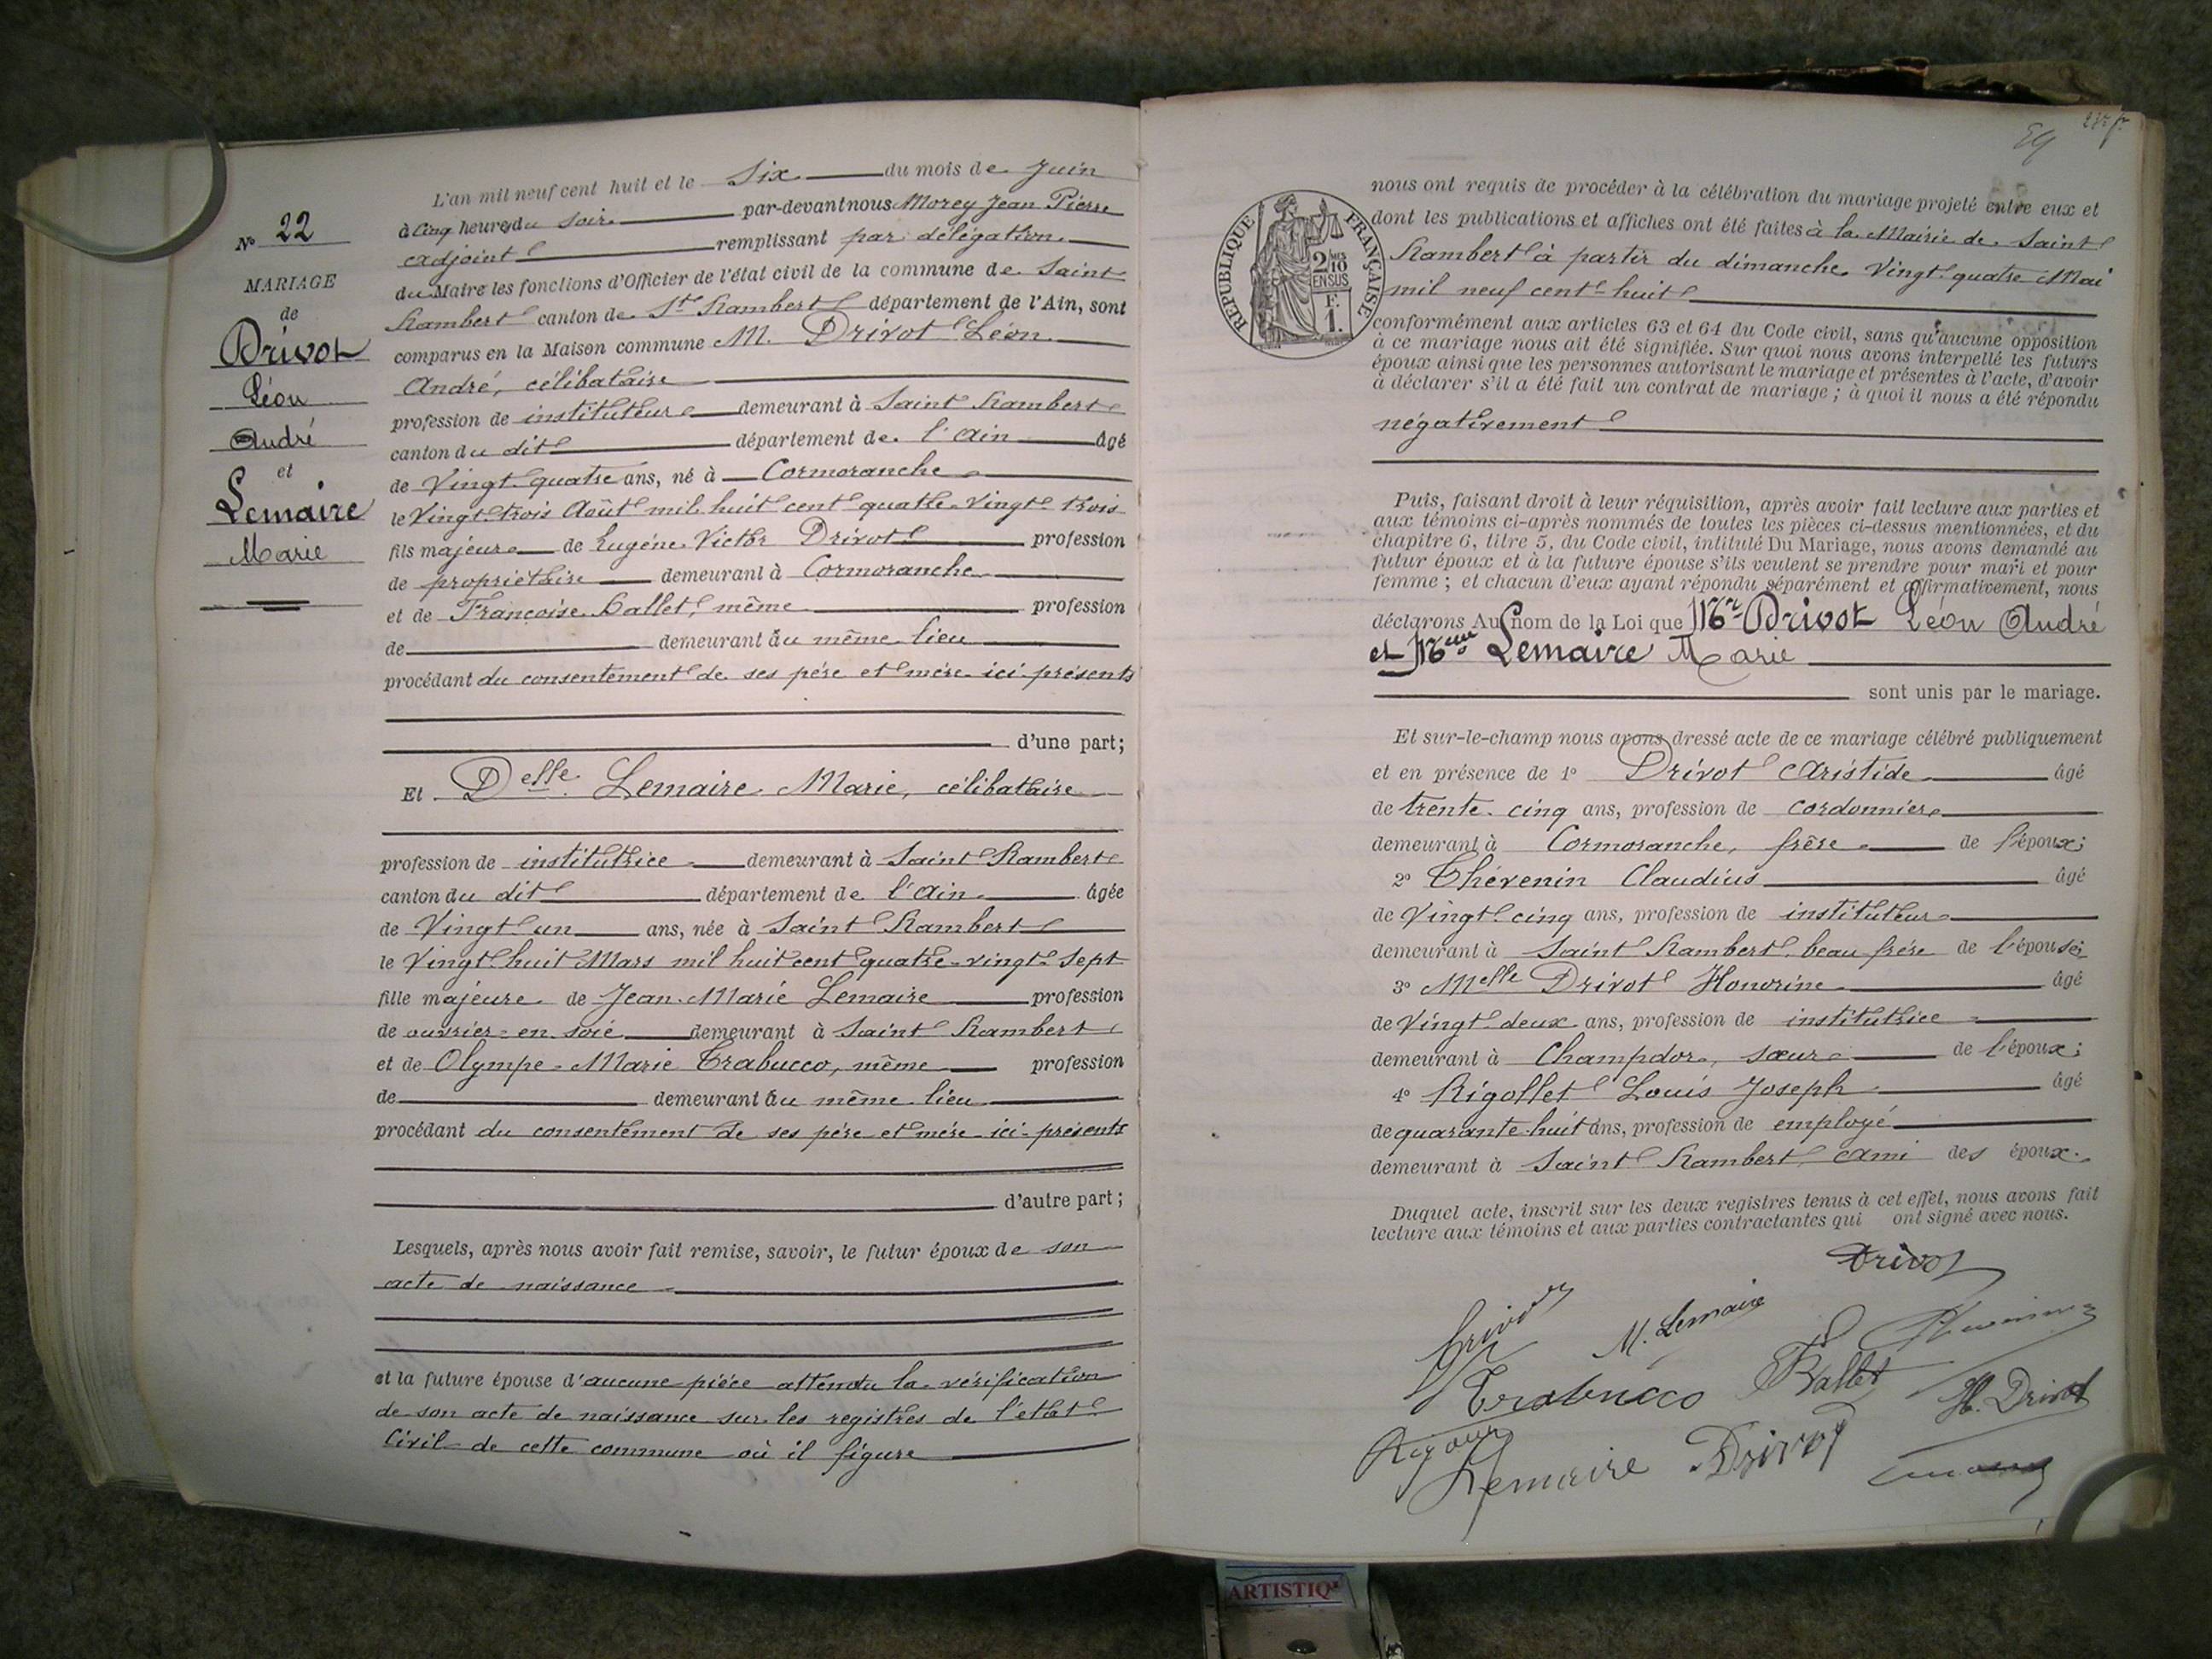 N° 22
MARIAGE
de
Drivot
Léon
André
et
Lemaire
Marie
L'an mil neuf cent huit et le Six du mois de Juin
à cinq heures du soir par-devant nous Morey Jean Pierre
adjoint remplissant par délégation
du Maire les fonctions d'Officier de l'état civil de la commune de Saint
Rambert canton de St Rambert département de l'Ain, sont
comparus en la Maison commune M. Drivot Léon
André, célibataire
profession de instituteur demeurant à Saint Rambert
canton du dit département de l'Ain âgé
de Vingt-quatre ans, né à Cormoranche
le Vingt-trois Août mil huit cent quatre-vingt-trois
fils majeur de Eugène Victor Drivot profession
de propriétaire demeurant à Cormoranche
et de Françoise Ballet, même profession
de demeurant au même lieu
procédant du consentement de ses père et mère ici présents
d'une part;
Et Delle Lemaire Marie, célibataire
profession de institutrice demeurant à Saint Rambert
canton du dit département de l'Ain âgée
de Vingt un ans, née à Saint Rambert
le Vingt huit Mars mil huit cent quatre-vingt-sept
fille majeure de Jean-Marie Lemaire profession
de ouvrier-en-soie demeurant à Saint Rambert
et de Olympe-Marie Trabucco, même profession
de demeurant au même lieu
procédant du consentement de ses père et mère ici présents
d'autre part;
Lesquels, après nous avoir fait remise, savoir, le futur époux de son
acte de naissance
et la future épouse d'aucune pièce attendu la vérification
de son acte de naissance sur les registres de l'état
Civil de cette commune où il figure
59
RÉPUBLIQUE FRANÇAISE
2 MES
10
EN SUS
F.
1.
nous ont requis de procéder à la célébration du mariage projeté entre eux et
dont les publications et affiches ont été faites à la Mairie de Saint
Rambert à partir du dimanche Vingt-quatre Mai
mil neuf cent huit
conformément aux articles 63 et 64 du Code civil, sans qu'aucune opposition
à ce mariage nous ait été signifiée. Sur quoi nous avons interpellé les futurs
époux ainsi que les personnes autorisant le mariage et présentes à l'acte, d'avoir
à déclarer s'il a été fait un contrat de mariage; à quoi il nous a été répondu
négativement
Puis, faisant droit à leur réquisition, après avoir fait lecture aux parties et
aux témoins ci-après nommés de toutes les pièces ci-dessus mentionnées, et du
chapitre 6, titre 5, du Code civil, intitulé Du Mariage, nous avons demandé au
futur époux et à la future épouse s'ils veulent se prendre pour mari et pour
femme; et chacun d'eux ayant répondu séparément et affirmativement, nous
déclarons Au nom de la Loi que Mr Drivot Léon André
et Melle Lemaire Marie
sont unis par le mariage.
Et sur-le-champ nous avons dressé acte de ce mariage célébré publiquement
et en présence de 1° Drivot Aristide âgé
de trente-cinq ans, profession de cordonnier
demeurant à Cormoranche, frère de l'époux;
2° Thévenin Claudius âgé
de Vingt-cinq ans, profession de instituteur
demeurant à Saint Rambert beau frère de l'épouse;
3° Melle Drivot Honorine âgé
de Vingt-deux ans, profession de institutrice
demeurant à Champdor, sœur de l'époux;
4° Rigollet Louis Joseph âgé
de quarante-huit ans, profession de employé
demeurant à Saint Rambert ami des époux.
Duquel acte, inscrit sur les deux registres tenus à cet effet, nous avons fait
lecture aux témoins et aux parties contractantes qui ont signé avec nous.
Drivot
M. Lemaire
Trabucco
Ballet
H. Drivot
Lemaire
Drivot
ARTISTIQ